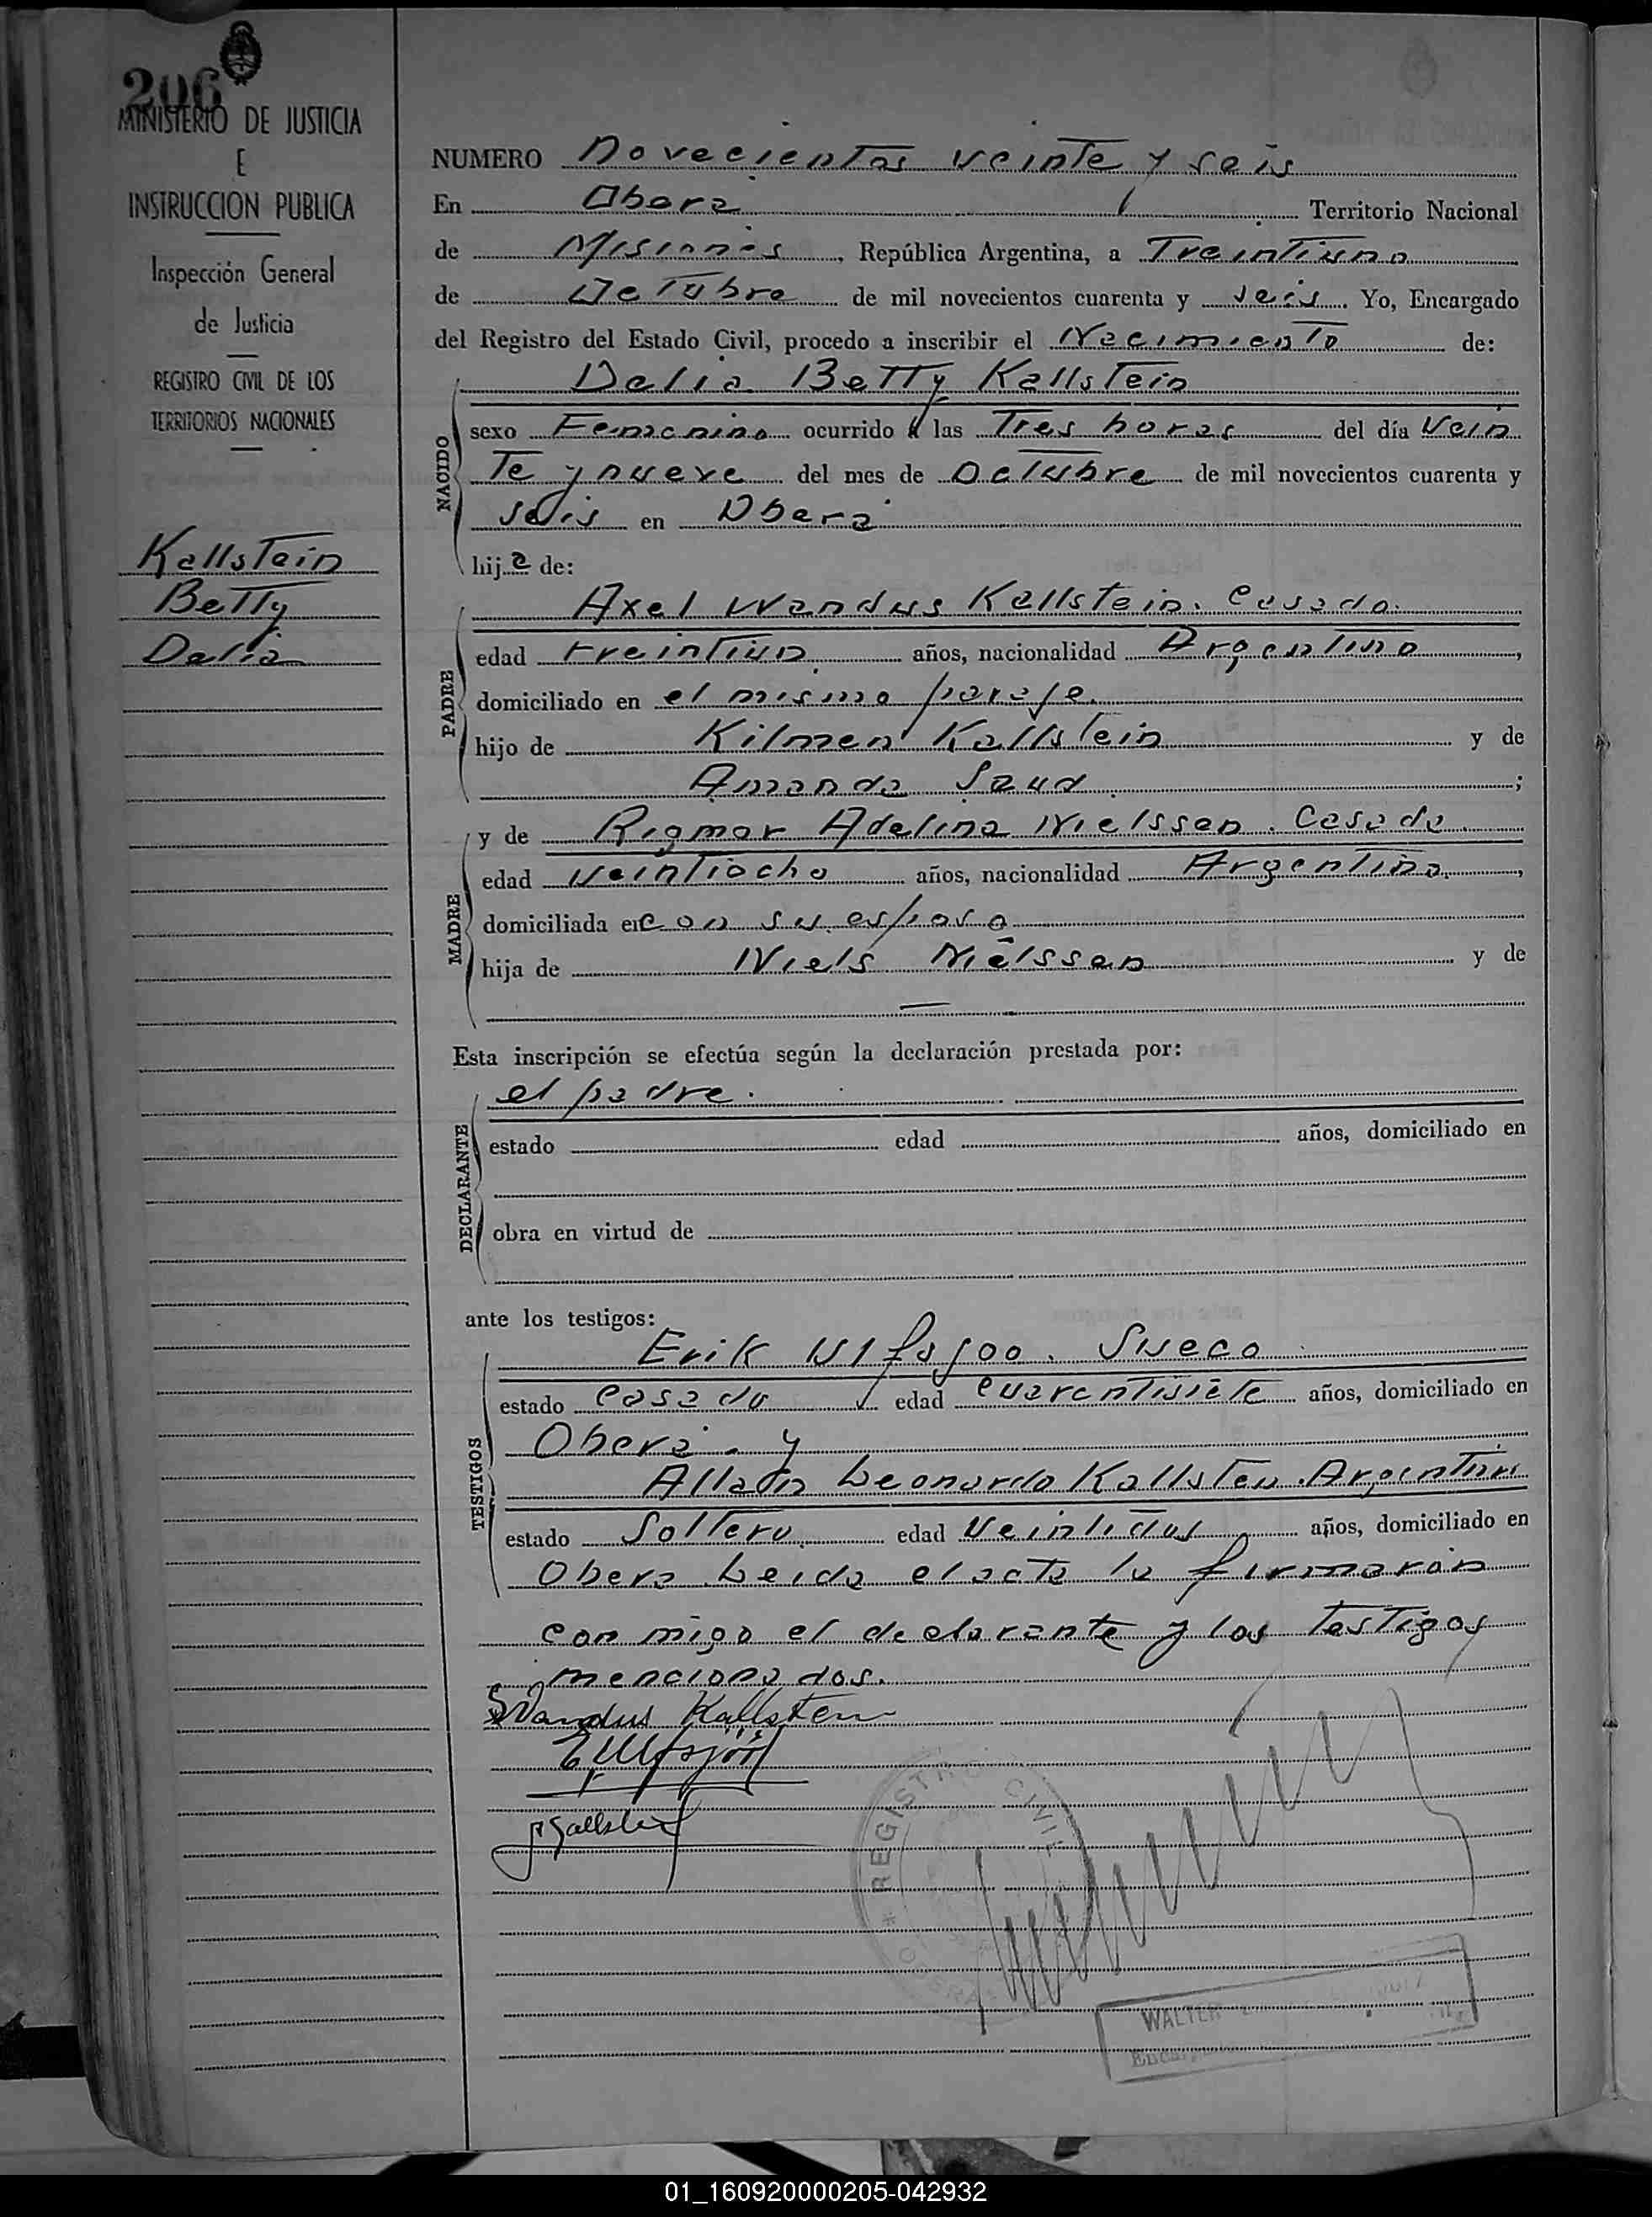 206
MINISTERIO DE JUSTICIA
E
INSTRUCCION PUBLICA
Inspección General
de Justicia
REGISTRO CIVIL DE LOS
TERRITORIOS NACIONALES
Kallstein
Betty
Delia
NUMERO Novecientos veinte y seis
En Oberá Territorio Nacional
de Misiones, República Argentina, a Treintiuno
de Octubre de mil novecientos cuarenta y seis. Yo, Encargado
del Registro del Estado Civil, procedo a inscribir el Nacimiento de:
NACIDO
Delia Betty Kallstein
sexo Femenino ocurrido a las Tres horas del día Vein
te y nueve del mes de Octubre de mil novecientos cuarenta y
seis en Oberá
hija de:
PADRE
Axel Wandus Kallstein. Casado.
edad treintiun años, nacionalidad Argentino,
domiciliado en el mismo paraje.
hijo de Kilmen Kallstein y de
Amanda Saud;
MADRE
y de Rigmor Adelina Nielssen. Casada.
edad Veintiocho años, nacionalidad Argentina,
domiciliada en con su esposo
hija de Niels Nielssen y de
—
Esta inscripción se efectúa según la declaración prestada por:
DECLARANTE
el padre.
estado edad años, domiciliado en
obra en virtud de
ante los testigos:
TESTIGOS
Erik Sueco
estado Casado edad Cuarentisiete años, domiciliado en
Oberá. y
Allan Leonardo Kallsten. Argentino
estado Soltero edad Veintidos años, domiciliado en
Oberá Leida el acta la firmarón
con migo el declarante y los testigos
mencionados.
Wandus Kallsten
REGISTRO CIVIL
WALTER